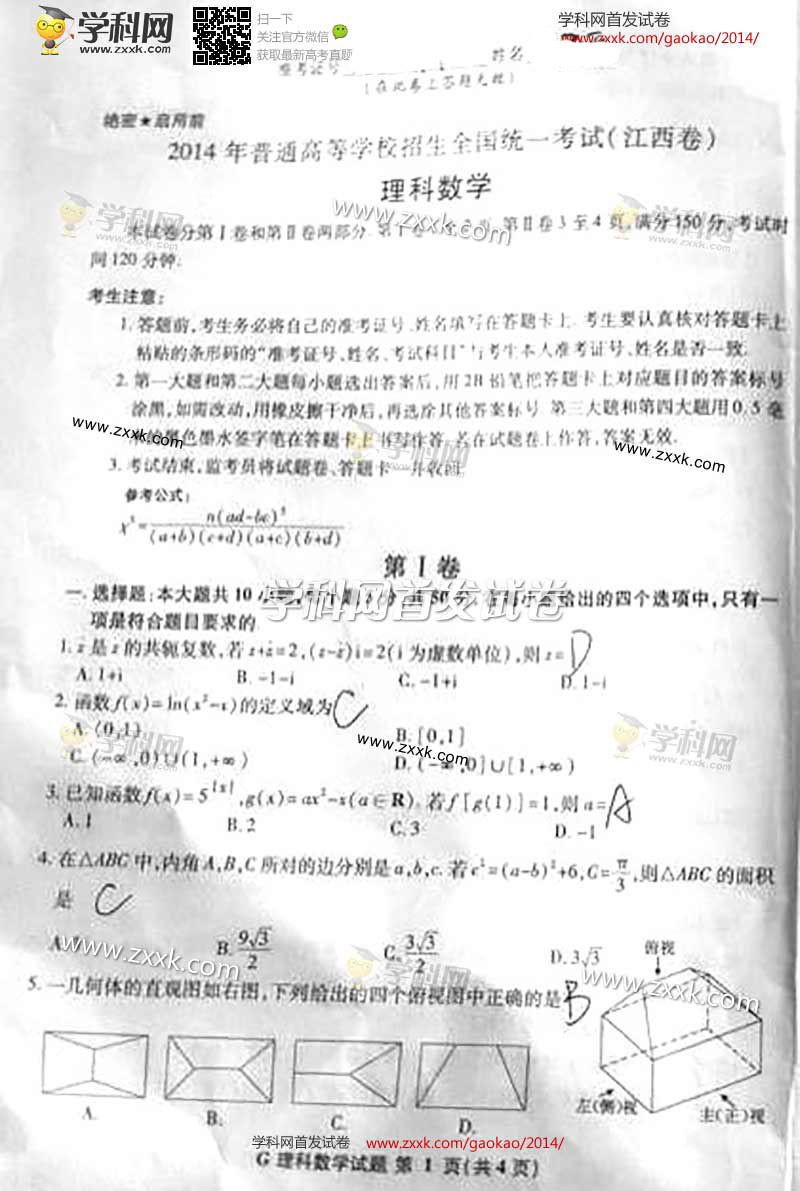 学科网
www.zxxk.com
扫一下
关注官方微信
获取最新高考真题
学科网首发试卷
www.zxxk.com/gaokao/2014/
姓名
(在此卷上答题无效)
绝密★启用前
2014年普通高等学校招生全国统一考试(江西卷)
理科数学
本试卷分第Ⅰ卷和第Ⅱ卷两部分. 第Ⅱ卷3至4页,满分150分,考试时
间120分钟.
考生注意:
1.答题前,考生务必将自己的准考证号、姓名填写在答题卡上.考生要认真核对答题卡上
粘贴的条形码的“准考证号、姓名、考试科目”与考生本人准考证号、姓名是否一致.
2.第一大题和第二大题每小题选出答案后,用2B铅笔把答题卡上对应题目的答案标号
涂黑,如需改动,用橡皮擦干净后,再选涂其他答案标号.第三大题和第四大题用0.5毫
墨色墨水签字笔在答题卡上书写作答.若在试题卷上作答,答案无效.
3.考试结束,监考员将试题卷、答题卡一并收回.
参考公式:
x²=n(ad-bc)²/(a+b)(c+d)(a+c)(b+d)
第Ⅰ卷
一.选择题:本大题共10小题,每小题5分,共50分.在每小题给出的四个选项中,只有一
项是符合题目要求的.
1.z̄是z的共轭复数,若z+z̄=2,(z-z̄)i=2(i为虚数单位),则z= D
A.1+i B.-1-i C.-1+i D.1-i
2.函数f(x)=ln(x²-x)的定义域为 C
A.(0,1) B.[0,1]
C.(-∞,0)∪(1,+∞) D.(-∞,0]∪[1,+∞)
3.已知函数f(x)=5^|x|,g(x)=ax²-x(a∈R).若f[g(1)]=1,则a= A
A.1 B.2 C.3 D.-1
4.在△ABC中,内角A,B,C所对的边分别是a,b,c.若c²=(a-b)²+6,C=π/3,则△ABC的面积
是 C
A. B.9√3/2 C.3√3/2 D.3√3
5.一几何体的直观图如右图,下列给出的四个俯视图中正确的是 B
俯视
左(侧)视 主(正)视
A. B. C. D.
学科网首发试卷 www.zxxk.com/gaokao/2014/
G 理科数学试题 第1页(共4页)